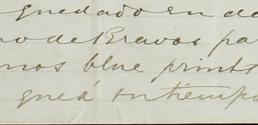 quedado en da
no de Bravos pa
mos blue prints
qued un tiempo